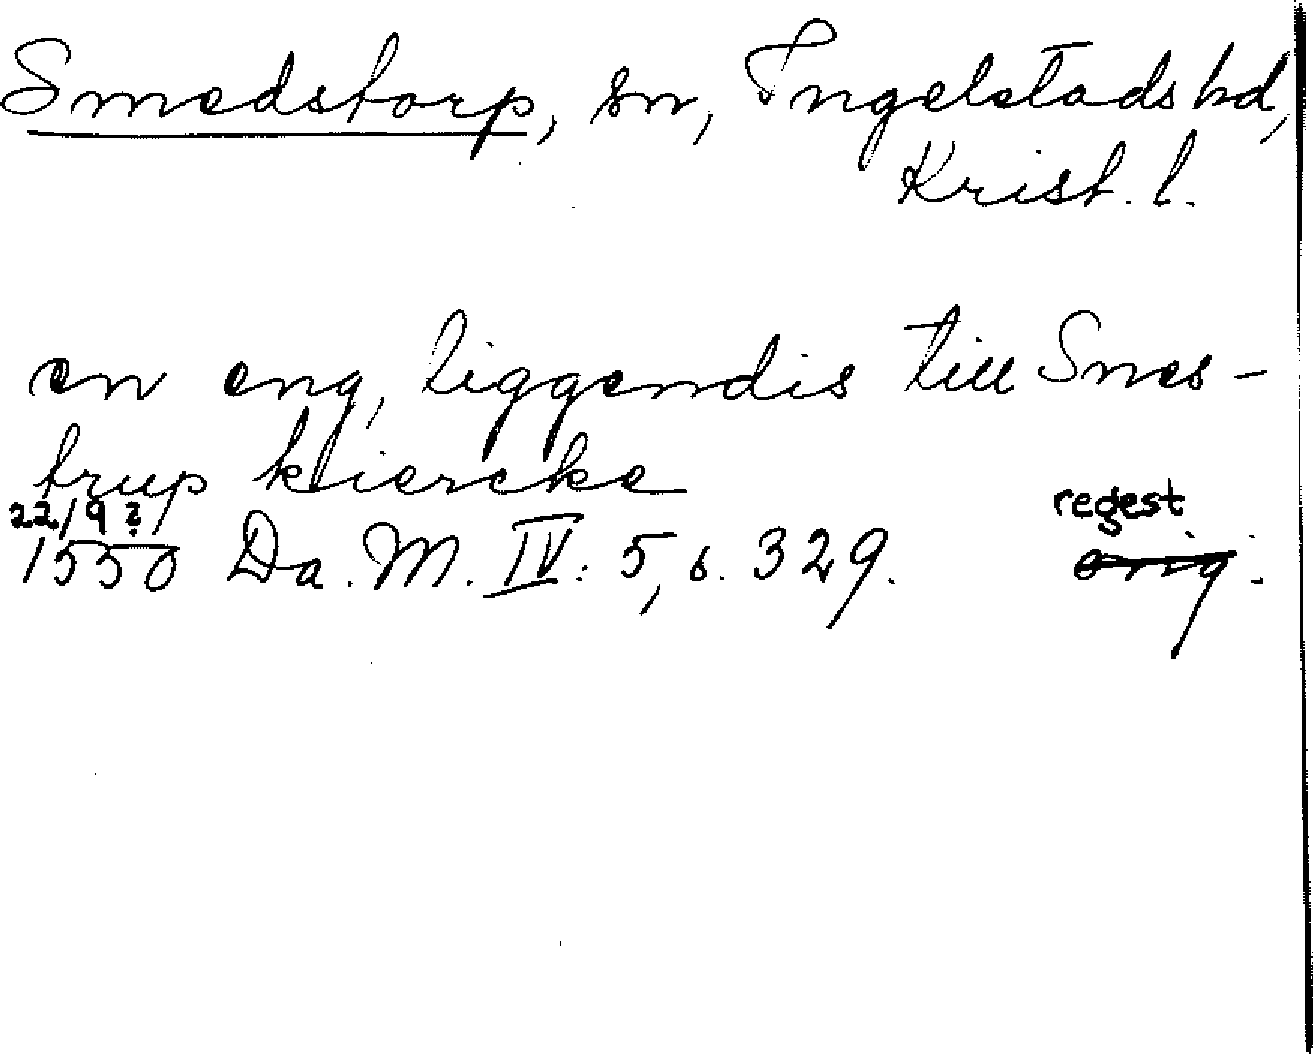 Smedstorp, sn, Ingelstads hd,
Krist. l.
en eng, liggendis till Smes-
trup kiercke
22/9 ? regest
1550 Da. M. IV: 5, s. 329. orig.